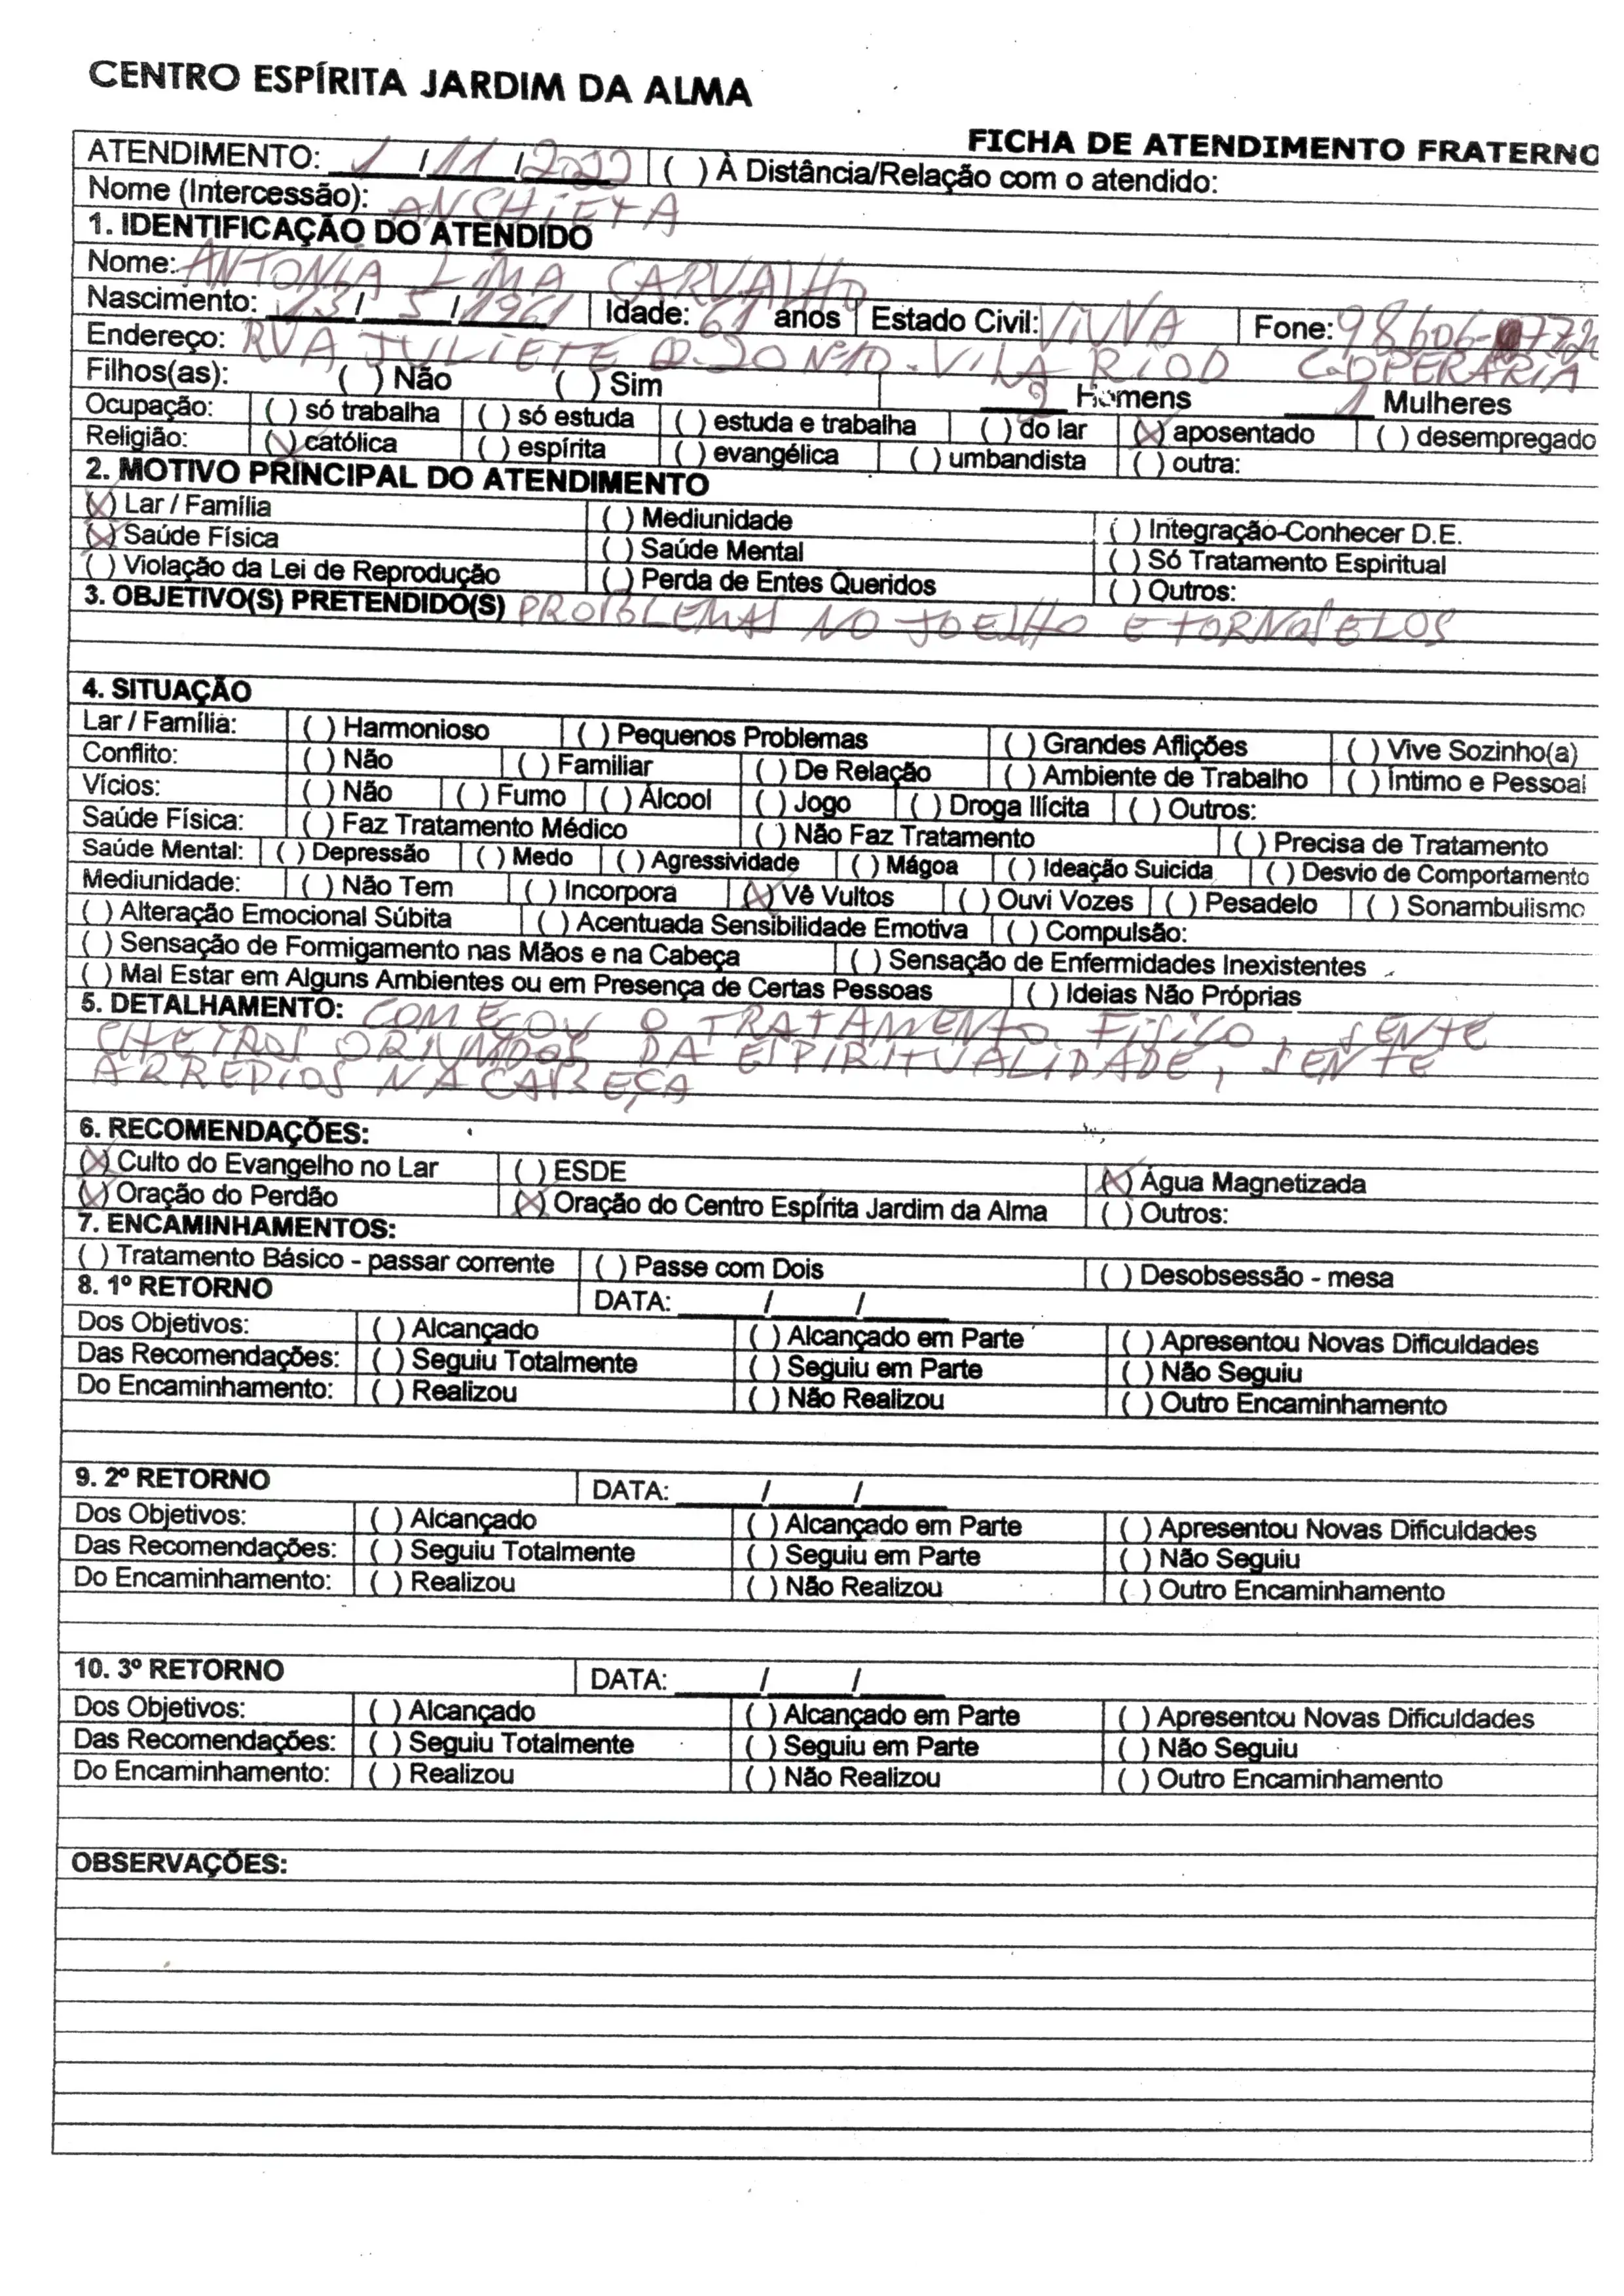 CENTRO ESPÍRITA JARDIM DA ALMA
FICHA DE ATENDIMENTO FRATERNO
ATENDIMENTO: 1 / 11 / 2022 ( ) À Distância/Relação com o atendido:
Nome (Intercessão): ANCHIETA
1. IDENTIFICAÇÃO DO ATENDIDO
Nome: ANTONIA LIMA CARVALHO
Nascimento: 13 / 5 / 1961 Idade: 61 anos Estado Civil: VIUVA Fone: 98606-
Endereço: RUA JULIETE Q-20 Nº10-VILA RIOD COOPERÁRIA
Filhos(as): ( ) Não ( ) Sim Homens 1 Mulheres
Ocupação: ( ) só trabalha ( ) só estuda ( ) estuda e trabalha ( ) do lar (X) aposentado ( ) desempregado
Religião: (X) católica ( ) espírita ( ) evangélica ( ) umbandista ( ) outra:
2. MOTIVO PRINCIPAL DO ATENDIMENTO
(X) Lar / Família ( ) Mediunidade ( ) Integração-Conhecer D.E.
(X) Saúde Física ( ) Saúde Mental ( ) Só Tratamento Espiritual
( ) Violação da Lei de Reprodução ( ) Perda de Entes Queridos ( ) Outros:
3. OBJETIVO(S) PRETENDIDO(S) PROIBLEMAS NO JOELHO E TORNOSELOS
4. SITUAÇÃO
Lar / Família: ( ) Harmonioso ( ) Pequenos Problemas ( ) Grandes Aflições ( ) Vive Sozinho(a)
Conflito: ( ) Não ( ) Familiar ( ) De Relação ( ) Ambiente de Trabalho ( ) Íntimo e Pessoal
Vícios: ( ) Não ( ) Fumo ( ) Álcool ( ) Jogo ( ) Droga Ilícita ( ) Outros:
Saúde Física: ( ) Faz Tratamento Médico ( ) Não Faz Tratamento ( ) Precisa de Tratamento
Saúde Mental: ( ) Depressão ( ) Medo ( ) Agressividade ( ) Mágoa ( ) Ideação Suicida ( ) Desvio de Comportamento
Mediunidade: ( ) Não Tem ( ) Incorpora (X) Vê Vultos ( ) Ouvi Vozes ( ) Pesadelo ( ) Sonambulismo
( ) Alteração Emocional Súbita ( ) Acentuada Sensibilidade Emotiva ( ) Compulsão:
( ) Sensação de Formigamento nas Mãos e na Cabeça ( ) Sensação de Enfermidades Inexistentes
( ) Mal Estar em Alguns Ambientes ou em Presença de Certas Pessoas ( ) Ideias Não Próprias
5. DETALHAMENTO: COMEÇOU O TRATAMENTO FISICO, SENTE
CHEIROS ORIUNDOS DA ESPIRITUALIDADE, SENTE
ARREPIOS NA CABEÇA
6. RECOMENDAÇÕES:
(X) Culto do Evangelho no Lar ( ) ESDE (X) Água Magnetizada
(X) Oração do Perdão (X) Oração do Centro Espírita Jardim da Alma ( ) Outros:
7. ENCAMINHAMENTOS:
( ) Tratamento Básico - passar corrente ( ) Passe com Dois ( ) Desobsessão - mesa
8. 1º RETORNO DATA: / /
Dos Objetivos: ( ) Alcançado ( ) Alcançado em Parte ( ) Apresentou Novas Dificuldades
Das Recomendações: ( ) Seguiu Totalmente ( ) Seguiu em Parte ( ) Não Seguiu
Do Encaminhamento: ( ) Realizou ( ) Não Realizou ( ) Outro Encaminhamento
9. 2º RETORNO DATA: / /
Dos Objetivos: ( ) Alcançado ( ) Alcançado em Parte ( ) Apresentou Novas Dificuldades
Das Recomendações: ( ) Seguiu Totalmente ( ) Seguiu em Parte ( ) Não Seguiu
Do Encaminhamento: ( ) Realizou ( ) Não Realizou ( ) Outro Encaminhamento
10. 3º RETORNO DATA: / /
Dos Objetivos: ( ) Alcançado ( ) Alcançado em Parte ( ) Apresentou Novas Dificuldades
Das Recomendações: ( ) Seguiu Totalmente ( ) Seguiu em Parte ( ) Não Seguiu
Do Encaminhamento: ( ) Realizou ( ) Não Realizou ( ) Outro Encaminhamento
OBSERVAÇÕES: